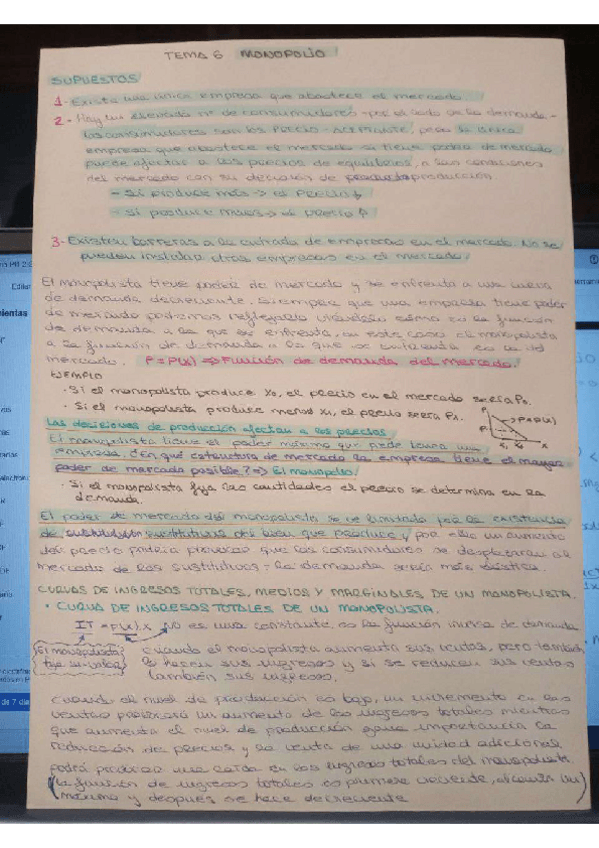 TEMA 6 MONOPOLIO
SUPUESTOS
1- Existe una única empresa que abastece el mercado.
2- Hay un elevado nº de consumidores por el lado de la demanda.
Los consumidores son los precio-aceptante, pero la única
empresa que abastece el mercado si tiene poder de mercado
puede afectar a los precios de equilibrios, a las condiciones
del mercado con su decisión de producción
- Si produce más -> el precio ↓
- Si produce menos -> el precio
3- Existen barreras a la entrada de empresas en el mercado. No se
pueden instalar otras empresas en el mercado.
El monopolista tiene poder de mercado y se enfrenta a una curva
de demanda decreciente. Siempre que una empresa tiene poder
de mercado podemos reflejarlo viendo cómo es la función
de demanda a la que se enfrenta, en este caso el monopolista
a la función de demanda a la que se enfrenta es la del
mercado. P = P(X) => Función de demanda del mercado.
EJEMPLO
· Si el monopolista produce X₀, el precio en el mercado será P₀.
· Si el monopolista produce menos X₁, el precio será P₁.
P=P(X)
Las decisiones de producción afectan a los precios
El monopolista tiene el poder máximo que puede tener una
empresa. ¿En qué estructura de mercado la empresa tiene el mayor
poder de mercado posible? => El monopolio.
· Si el monopolista fija las cantidades el precio se determina en la
demanda.
El poder de mercado del monopolista se ve limitado por la existencia
de sustitutivos del bien que produce y por ello un aumento
del precio podría provocar que los consumidores se desplazaran al
mercado de los sustitutivos: la demanda sería más elástica.
CURVAS DE INGRESOS TOTALES, MEDIOS Y MARGINALES DE UN MONOPOLISTA.
· CURVA DE INGRESOS TOTALES DE UN MONOPOLISTA.
IT = P(X).X NO es una constante, es la función inversa de demanda
El monopolista
cuando el monopolista aumenta sus ventas, pero también
lo hacen sus ingresos y si se reducen sus ventas
también sus ingresos.
Cuando el nivel de producción es bajo, un incremento en las
ventas provocará un aumento de los ingresos totales mientras
que aumenta el nivel de producción gana importancia la
reducción de precios y la venta de una unidad adicional
podrá provocar una caída en los ingresos totales del monopolista
(la función de ingresos totales es primero creciente, alcanza un
máximo y después se hace decreciente